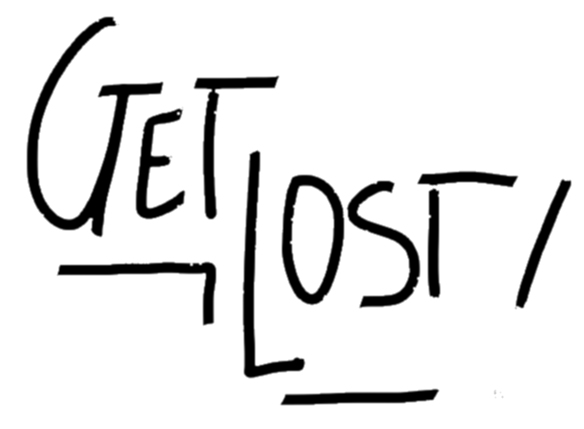 GET
LOST/